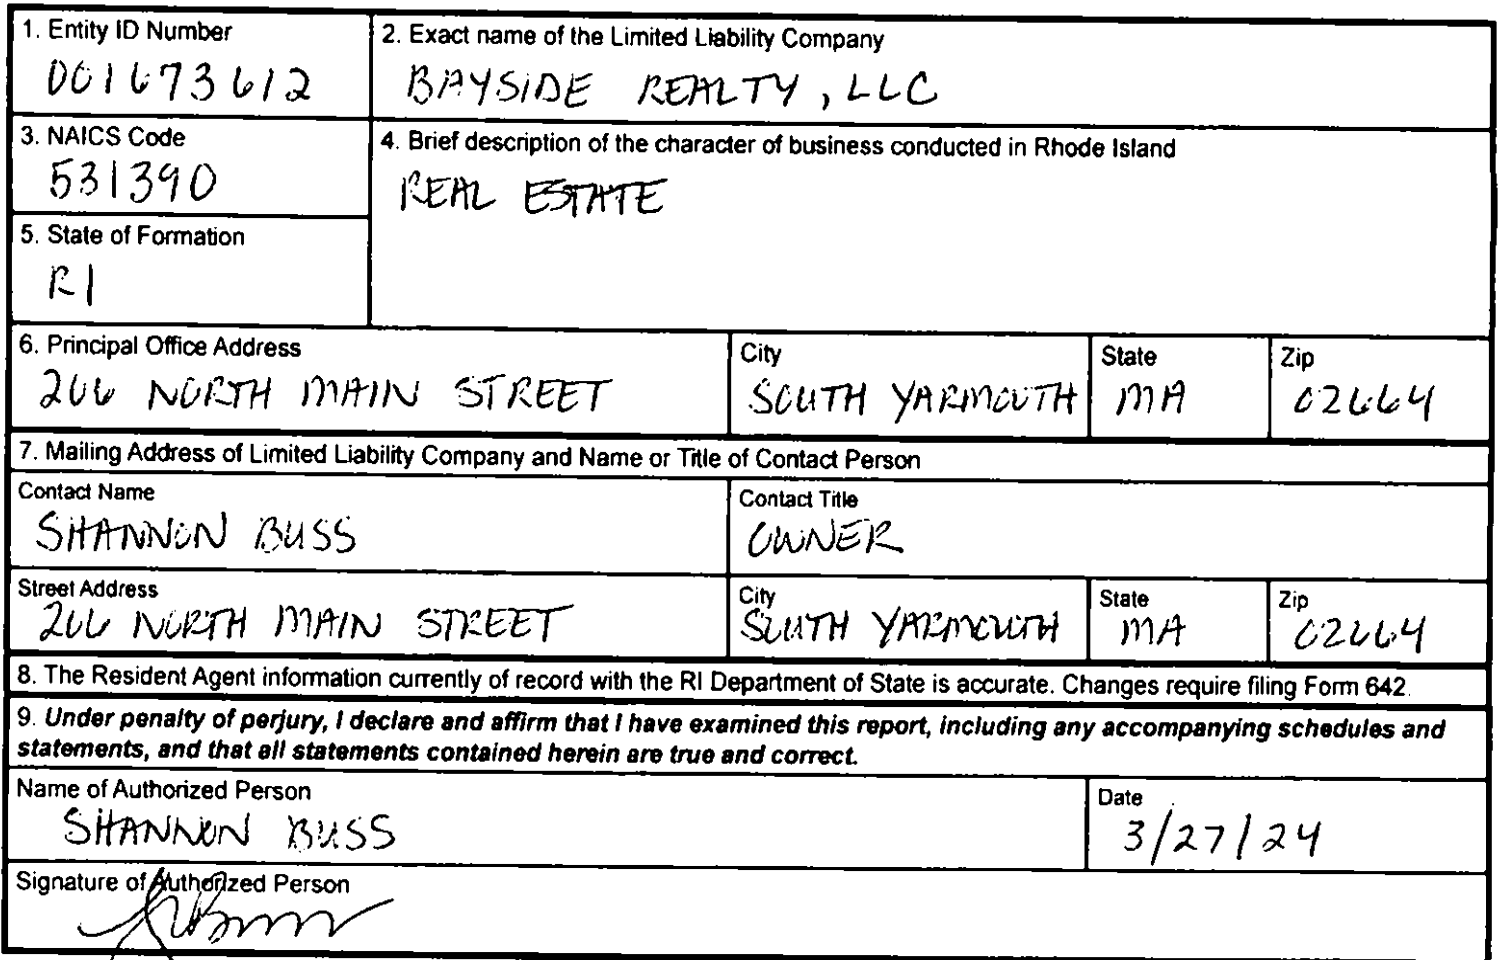 1. Entity ID Number
001673612
2. Exact name of the Limited Liability Company
BAYSIDE REALTY, LLC
3. NAICS Code
531390
4. Brief description of the character of business conducted in Rhode Island
REAL ESTATE
5. State of Formation
RI
6. Principal Office Address
266 NORTH MAIN STREET
City
SOUTH YARMOUTH
State
MA
Zip
02664
7. Mailing Address of Limited Liability Company and Name or Title of Contact Person
Contact Name
SHANNON BUSS
Contact Title
OWNER
Street Address
266 NORTH MAIN STREET
City
SOUTH YARMOUTH
State
MA
Zip
02664
8. The Resident Agent information currently of record with the RI Department of State is accurate. Changes require filing Form 642.
9. Under penalty of perjury, I declare and affirm that I have examined this report, including any accompanying schedules and
statements, and that all statements contained herein are true and correct.
Name of Authorized Person
SHANNON BUSS
Date
3/27/24
Signature of Authorized Person